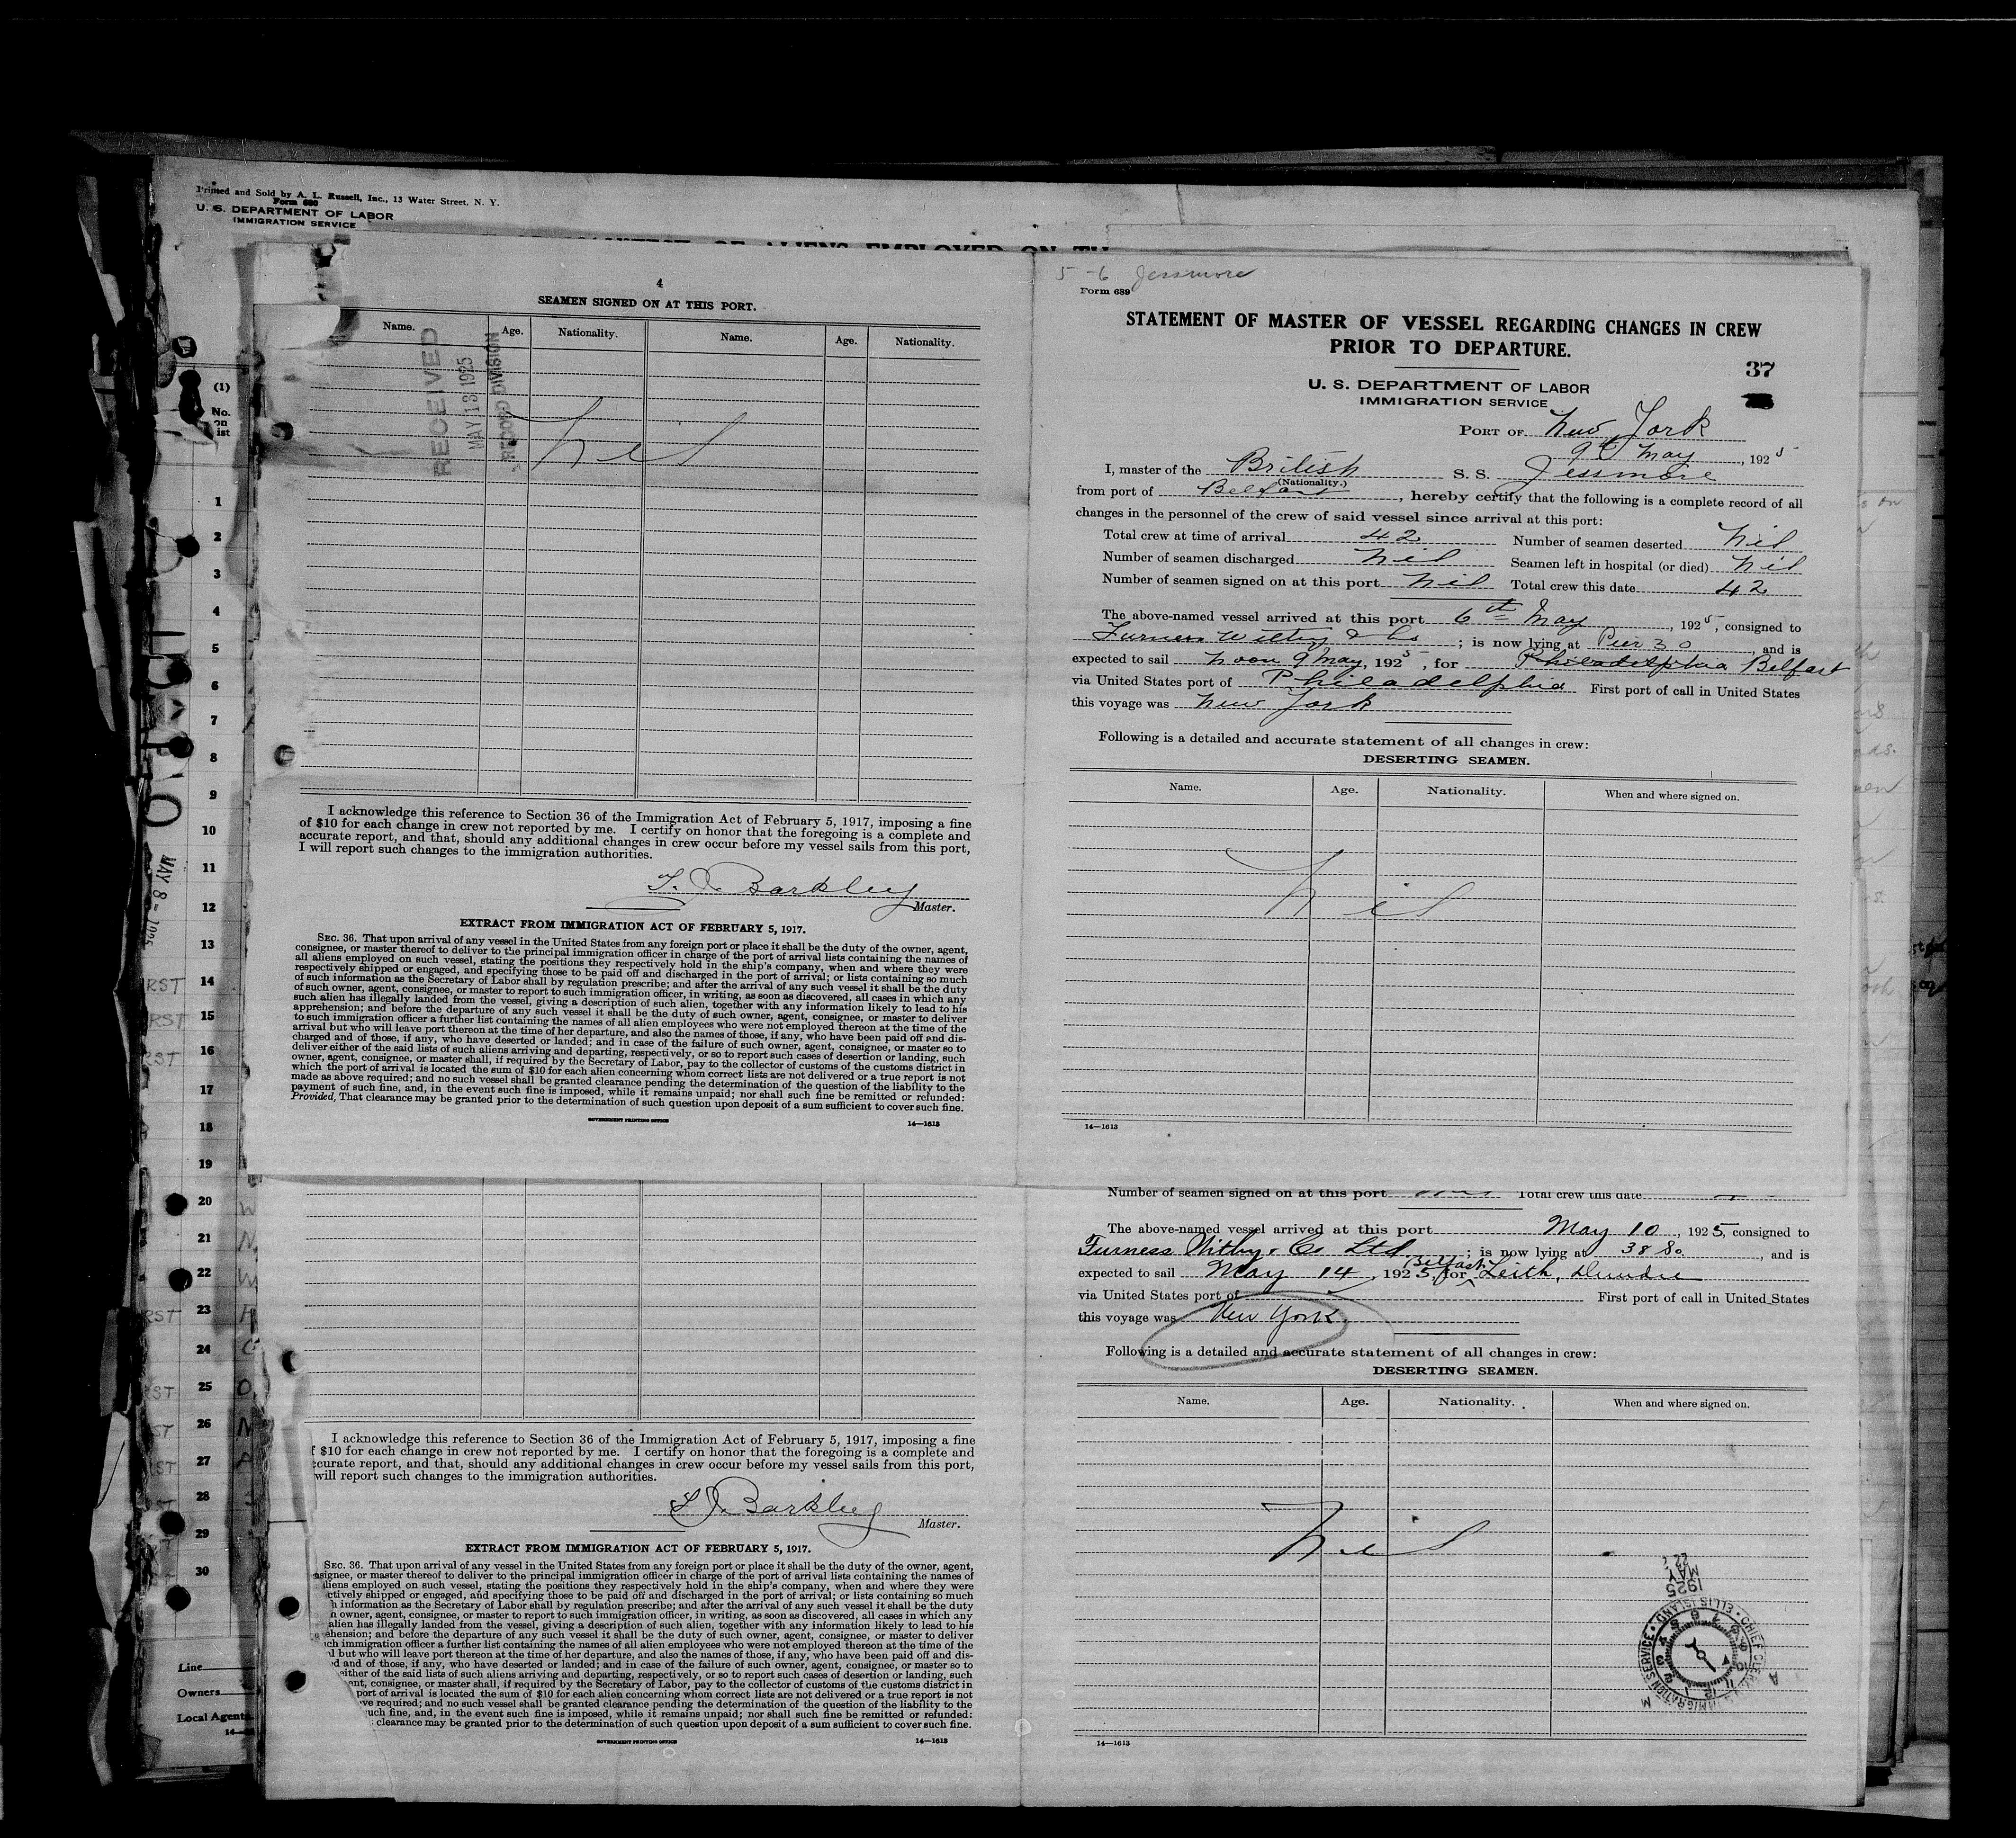 Printed and Sold by A. L. Russell, Inc., 13 Water Street, N. Y.
Form 680
U. S. DEPARTMENT OF LABOR
IMMIGRATION SERVICE
(1)
No.
on
list
1
2
3
4
5
6
7
8
9
10
11
12
13
14
15
16
17
18
19
20
21
22
23
24
25
26
27
28
29
30
Line
Owners
Local Agents
MAY 8 - 1925
4
SEAMEN SIGNED ON AT THIS PORT.
Name. Age. Nationality. Name. Age. Nationality.
RECEIVED
MAY 13 1925
RECORD DIVISION
Nil
I acknowledge this reference to Section 36 of the Immigration Act of February 5, 1917, imposing a fine
of $10 for each change in crew not reported by me. I certify on honor that the foregoing is a complete and
accurate report, and that, should any additional changes in crew occur before my vessel sails from this port,
I will report such changes to the immigration authorities.
T. J. Barkley
Master.
EXTRACT FROM IMMIGRATION ACT OF FEBRUARY 5, 1917.
SEC. 36. That upon arrival of any vessel in the United States from any foreign port or place it shall be the duty of the owner, agent,
consignee, or master thereof to deliver to the principal immigration officer in charge of the port of arrival lists containing the names of
all aliens employed on such vessel, stating the positions they respectively hold in the ship's company, when and where they were
respectively shipped or engaged, and specifying those to be paid off and discharged in the port of arrival; or lists containing so much
of such information as the Secretary of Labor shall by regulation prescribe; and after the arrival of any such vessel it shall be the duty
of such owner, agent, consignee, or master to report to such immigration officer, in writing, as soon as discovered, all cases in which any
such alien has illegally landed from the vessel, giving a description of such alien, together with any information likely to lead to his
apprehension; and before the departure of any such vessel it shall be the duty of such owner, agent, consignee, or master to deliver
to such immigration officer a further list containing the names of all alien employees who were not employed thereon at the time of the
arrival but who will leave port thereon at the time of her departure, and also the names of those, if any, who have been paid off and dis-
charged and of those, if any, who have deserted or landed; and in case of the failure of such owner, agent, consignee, or master so to
deliver either of the said lists of such aliens arriving and departing, respectively, or so to report such cases of desertion or landing, such
owner, agent, consignee, or master shall, if required by the Secretary of Labor, pay to the collector of customs of the customs district in
which the port of arrival is located the sum of $10 for each alien concerning whom correct lists are not delivered or a true report is not
made as above required; and no such vessel shall be granted clearance pending the determination of the question of the liability to the
payment of such fine, and, in the event such fine is imposed, while it remains unpaid; nor shall such fine be remitted or refunded:
Provided, That clearance may be granted prior to the determination of such question upon deposit of a sum sufficient to cover such fine.
GOVERNMENT PRINTING OFFICE 14—1613
5 - 6 Jessmore
Form 689
STATEMENT OF MASTER OF VESSEL REGARDING CHANGES IN CREW
PRIOR TO DEPARTURE.
37
U. S. DEPARTMENT OF LABOR
IMMIGRATION SERVICE
PORT OF New York
9th May, 1925
I, master of the British S. S. Jessmore
(Nationality.)
from port of Belfast, hereby certify that the following is a complete record of all
changes in the personnel of the crew of said vessel since arrival at this port:
Total crew at time of arrival 42 Number of seamen deserted Nil
Number of seamen discharged Nil Seamen left in hospital (or died) Nil
Number of seamen signed on at this port Nil Total crew this date 42
The above-named vessel arrived at this port 6th May, 1925, consigned to
Furness Withy & Co; is now lying at Pier 30, and is
expected to sail Noon 9 May, 1925, for Philadelphia Belfast
via United States port of Philadelphia First port of call in United States
this voyage was New York
Following is a detailed and accurate statement of all changes in crew:
DESERTING SEAMEN.
Name. Age. Nationality. When and where signed on.
Nil
14—1613
I acknowledge this reference to Section 36 of the Immigration Act of February 5, 1917, imposing a fine
f $10 for each change in crew not reported by me. I certify on honor that the foregoing is a complete and
ccurate report, and that, should any additional changes in crew occur before my vessel sails from this port,
will report such changes to the immigration authorities.
T. J. Barkley
Master.
EXTRACT FROM IMMIGRATION ACT OF FEBRUARY 5, 1917.
SEC. 36. That upon arrival of any vessel in the United States from any foreign port or place it shall be the duty of the owner, agent,
nsignee, or master thereof to deliver to the principal immigration officer in charge of the port of arrival lists containing the names of
aliens employed on such vessel, stating the positions they respectively hold in the ship's company, when and where they were
ctively shipped or engaged, and specifying those to be paid off and discharged in the port of arrival; or lists containing so much
h information as the Secretary of Labor shall by regulation prescribe; and after the arrival of any such vessel it shall be the duty
h owner, agent, consignee, or master to report to such immigration officer, in writing, as soon as discovered, all cases in which any
alien has illegally landed from the vessel, giving a description of such alien, together with any information likely to lead to his
ehension; and before the departure of any such vessel it shall be the duty of such owner, agent, consignee, or master to deliver
ch immigration officer a further list containing the names of all alien employees who were not employed thereon at the time of the
l but who will leave port thereon at the time of her departure, and also the names of those, if any, who have been paid off and dis-
d and of those, if any, who have deserted or landed; and in case of the failure of such owner, agent, consignee, or master so to
either of the said lists of such aliens arriving and departing, respectively, or so to report such cases of desertion or landing, such
ent, consignee, or master shall, if required by the Secretary of Labor, pay to the collector of customs of the customs district in
port of arrival is located the sum of $10 for each alien concerning whom correct lists are not delivered or a true report is not
ve required; and no such vessel shall be granted clearance pending the determination of the question of the liability to the
uch fine, and, in the event such fine is imposed, while it remains unpaid; nor shall such fine be remitted or refunded:
clearance may be granted prior to the determination of such question upon deposit of a sum sufficient to cover such fine.
GOVERNMENT PRINTING OFFICE 14—1613
Number of seamen signed on at this port Total crew this date
The above-named vessel arrived at this port May 10, 1925, consigned to
Furness Withy & Co Ltd; is now lying at 38 So., and is
expected to sail May 14, 1925, for Belfast Leith, Dundee
via United States port of First port of call in United States
this voyage was New York
Following is a detailed and accurate statement of all changes in crew:
DESERTING SEAMEN.
Name. Age. Nationality. When and where signed on.
Nil
1925 MAY 22
CHIEF CLERK IMMIGRATION SERVICE ELLIS ISLAND
14—1613